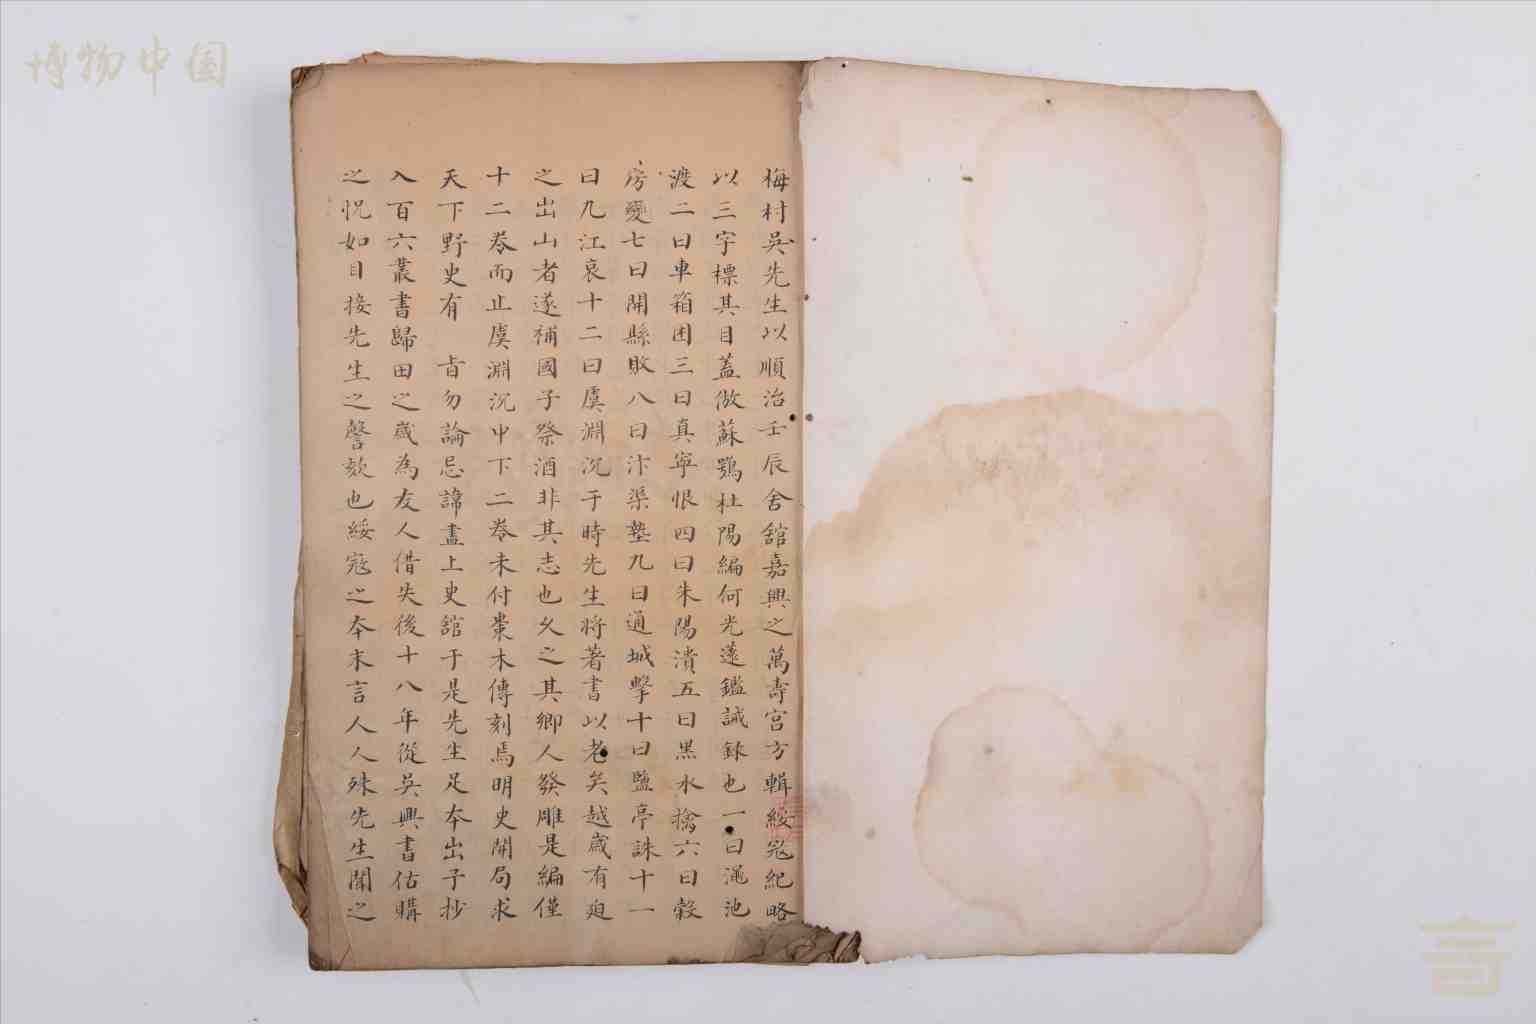 博物中国
梅村吳先生以順治壬辰舍舘嘉興之萬壽宮方輯綏寇紀略
以三字標其目蓋倣蘇鶚杜陽編何光遠鑑誡錄也一曰澠池
渡二曰車箱困三曰真寧恨四曰朱陽潰五曰黑水擒六曰穀
房變七曰開縣敗八曰汴渠墊九曰通城擊十曰鹽亭誅十一
曰九江哀十二曰虞淵沉于時先生將著書以老矣越歲有廹
之出山者遂補國子祭酒非其志也久之其鄉人發雕是編僅
十二卷而止虞淵沉中下二卷未付棗木傳刻焉明史開局求
天下野史有 㫖勿論忌諱盡上史舘于是先生足本出予抄
入百六叢書歸田之歲為友人借失後十八年從吳興書估購
之怳如目接先生之謦欬也綏寇之本末言人人殊先生聞之